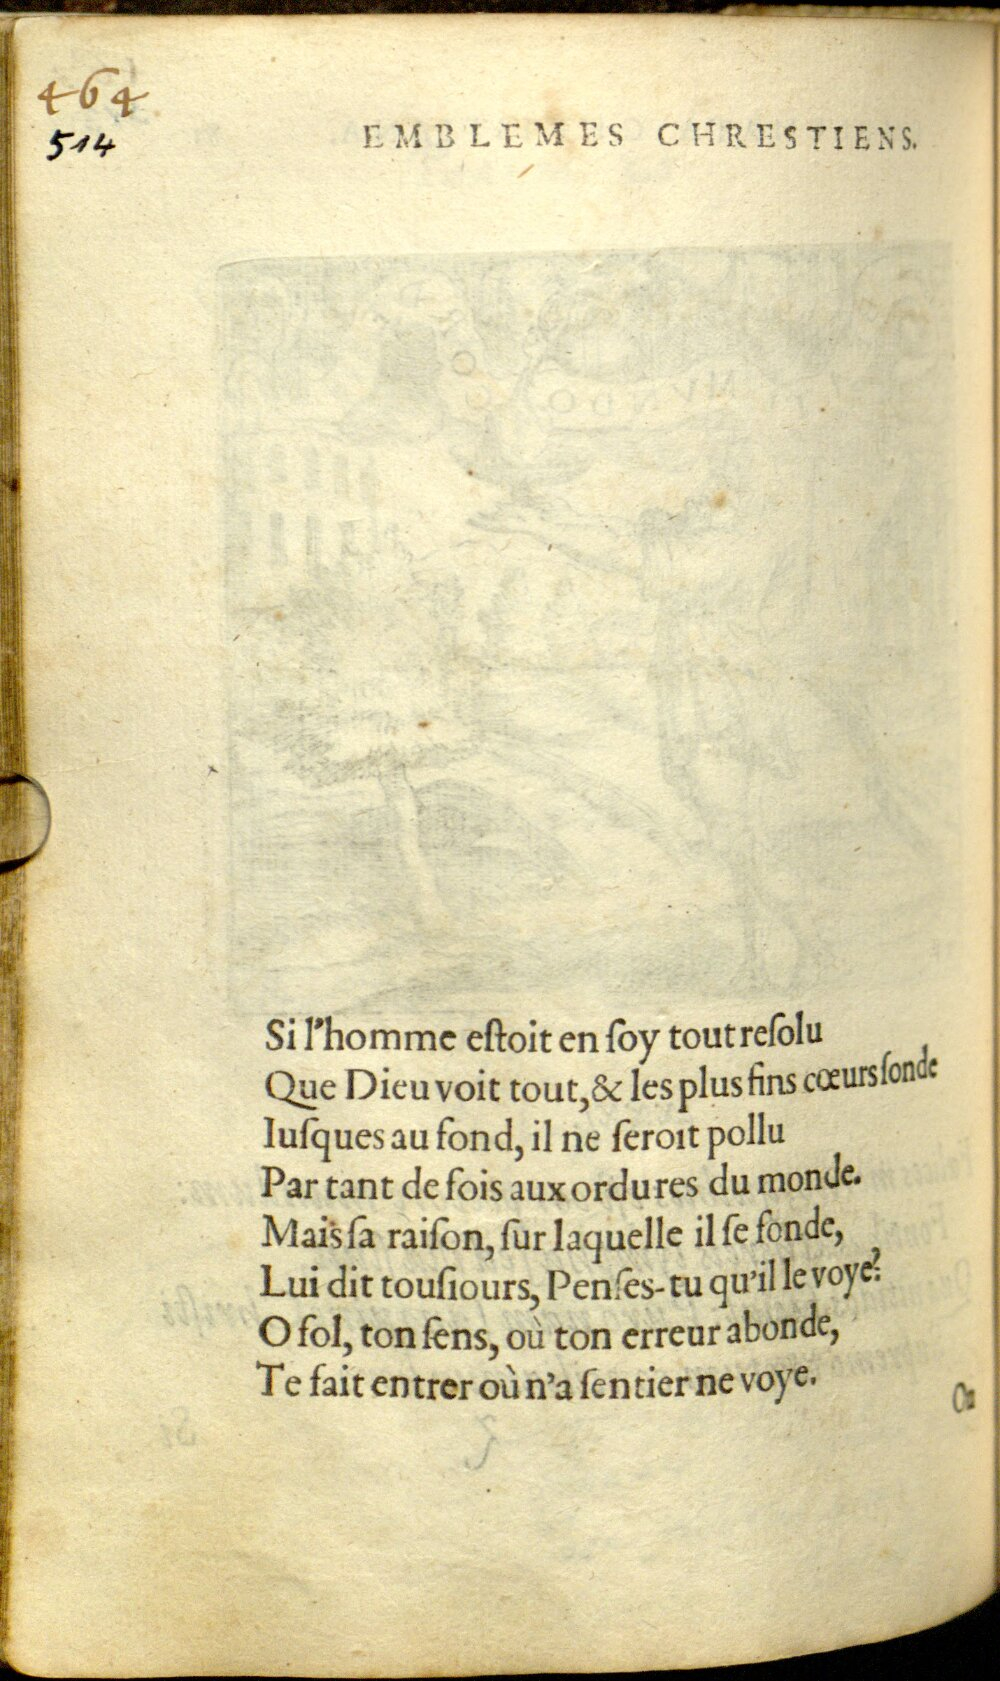 464
514
EMBLEMES CHRESTIENS.
Si l'homme eſtoit en ſoy tout reſolu
Que Dieu voit tout, & les plus fins cœurs ſonde
Iuſques au fond, il ne ſeroit pollu
Par tant de fois aux ordures du monde.
Mais ſa raiſon, ſur laquelle il ſe fonde,
Lui dit touſiours, Penſes-tu qu'il le voye?
O fol, ton ſens, où ton erreur abonde,
Te fait entrer où n'a ſentier ne voye.
Ou